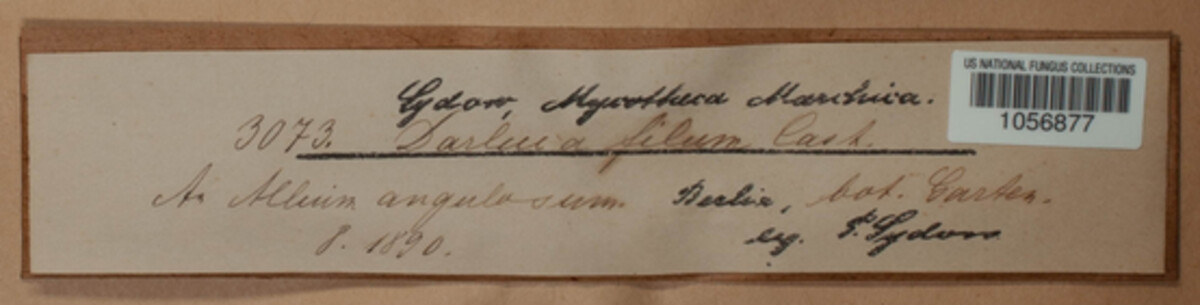 Sydow, Mycotheca Marchica.
US NATIONAL FUNGUS COLLECTIONS
1056877
3073. Darluca filum Cast.
An Allium angulosum. Berlin, bot. Garten.
8. 1890. leg. P. Sydow